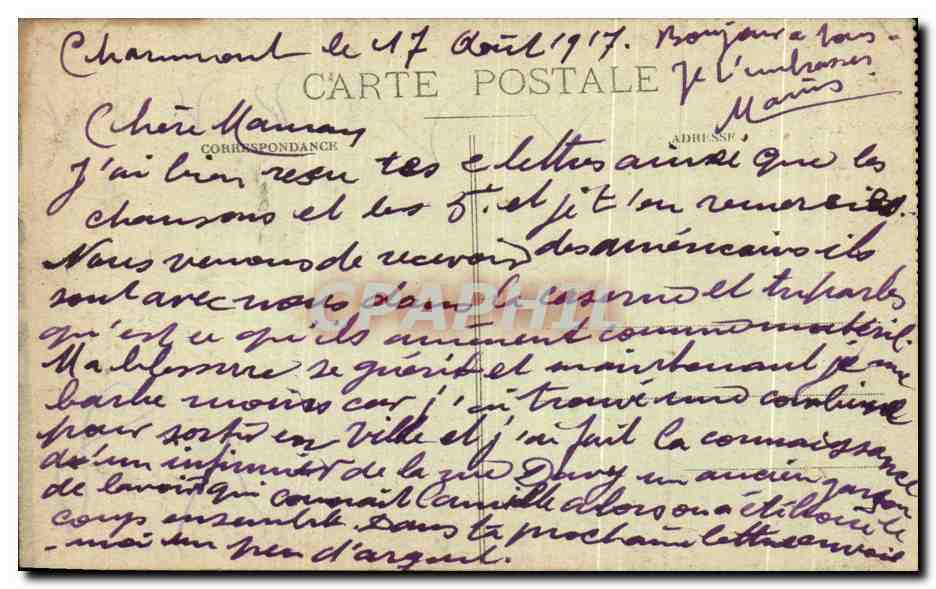 Charmont le 17 Août 1917. Bonjour a tous
Je t'embrasse
Marius
CARTE POSTALE
Chère Maman
CORRESPONDANCE
ADRESSE
J'ai bien reçu tes 2 lettres ainsi que les
chansons et les 5f. et je t'en remercie.
Nous venons de recevoir des américains ils
sont avec nous dans la caserne et tu parles
qu'est ce qu'ils amènent comme matériel.
Ma blessure se guérit et maintenant je me
barbe moins car j'ai trouvé une combine
pour sortir en Ville et j'ai fait la connaissance
d'un infirmier de la rue Davy un ancien garçon
de lavoir qui connait Camille alors on a été boire le
coup ensemble Dans ta prochaine lettre envoie
-moi un peu d'argent.
CPAPHIL